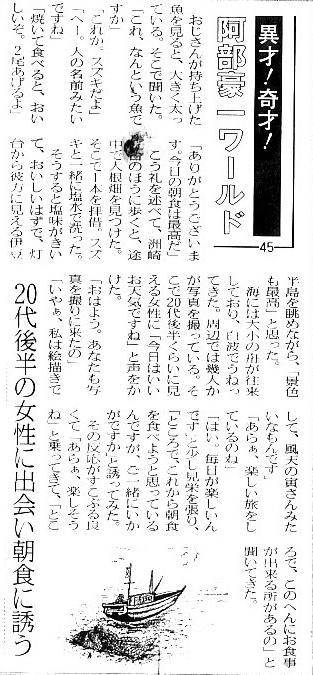 異才!奇才!
阿部豪一ワールド
—45—
おじさんが持ち上げた
魚を見ると、大きく太っ
ている。そこで聞いた。
「これ、なんという魚で
すか」
「これか、スズキだよ」
「へー。人の名前みたい
ですね」
「焼いて食べると、おい
しいぞ。2尾あげるよ」
「ありがとうございま
す。今日の朝食は最高だ」
こう礼を述べて、洲崎
のほうに歩くと、途
中で大根畑を見つけた。
そこで1本を拝借。スズ
キと一緒に塩水で洗った。
そうすると塩味がきい
て、おいしいはずで、灯
台から彼方に見える伊豆
半島を眺めながら、「景色
も最高」と思った。
海には大小の舟が往来
しており、白波でうねっ
てきた。周辺では幾人か
が写真を撮っている。そ
こで20代後半くらいに見
える女性に「今日はいい
お天気ですね」と声をか
けた。
「おはよう。あなたも写
真を撮りに来たの」
「いやぁ、私は絵描きで
して、風天の寅さんみた
いなもんです」
「あらぁ、楽しい旅をし
ているのね」
「はい。毎日が楽しいん
です」と少し見栄を張り、
「ところで、これから朝食
を食べようと思っている
んですが、ご一緒にいか
がですか」と誘ってみた。
その反応がすこぶる良
くて「あらぁ、楽しそう
ね」と乗ってきて、「とこ
ろで、このへんにお食事
が出来る所があるの」と
聞いてきた。
20代後半の女性に出会い朝食に誘う